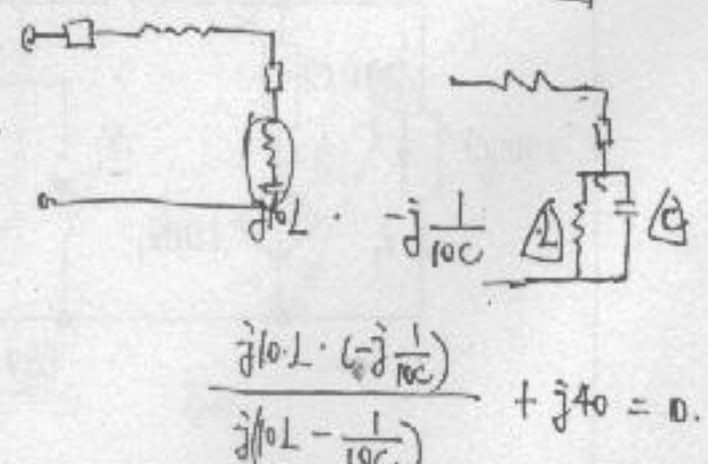 j10L · -j 1/10C
L C
j10·L · (-j 1/10C) / j(10L - 1/10C) + j40 = 0.